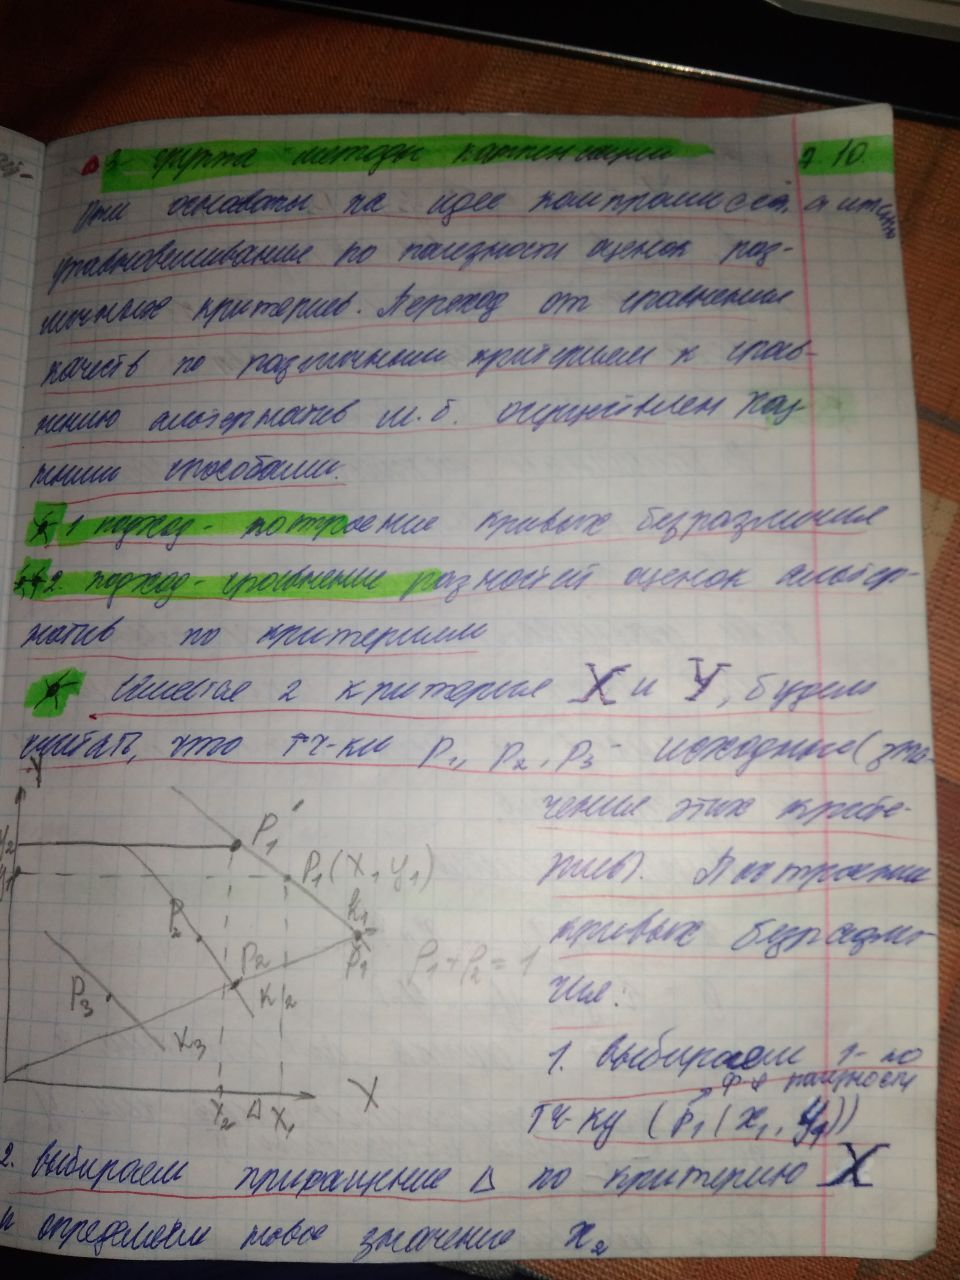 3 группа методы компенсации 2.10
Они основаны на идее компромисса, и
уравновешивание по полезности оценок раз-
личных критериев. Переход от сравнения
качеств по различным критериям к срав-
нению альтернатив м.б. осуществлен раз-
ными способами.
1 подход - построение кривых безразличия
2. подход - сравнение разностей оценок альтер-
натив по критериям
2 критерия X и Y, будем
считать, что тч-ки P1, P2, P3 - исходные (зна-
чение этих крите-
риев). Построение
кривых безразли-
чия:
1. выбираем 1-ю
ф-я полезности
тч-ку (P1(x1, y1))
2. выбираем приращение Δ по критерию X
и определяем новое значение x2
Y
y2
y1
P1'
P1(x1 y1)
K1
P1
P2
P2
K2
P3
K3
P1+P2=1
x2 Δ x1
X